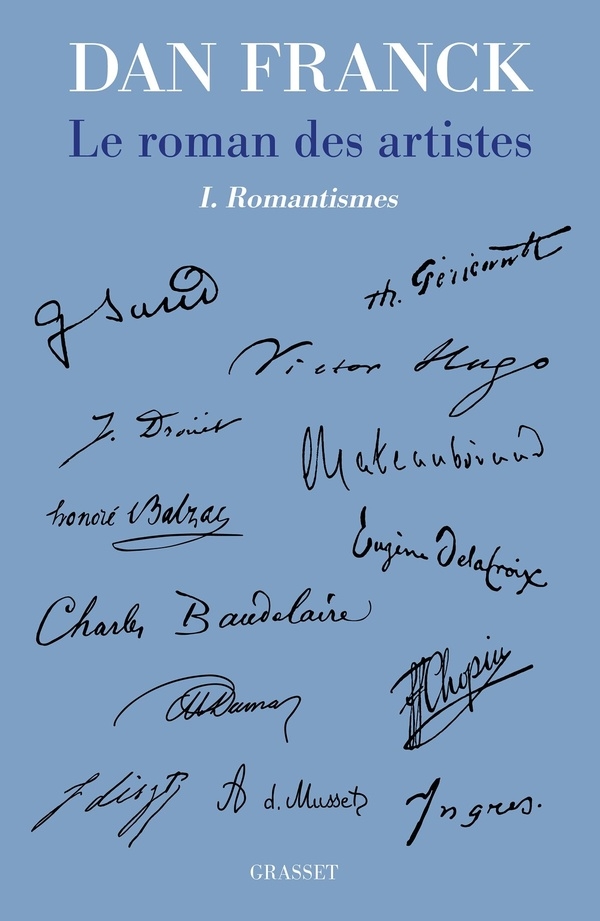 DAN FRANCK
Le roman des artistes
I. Romantismes
G Sand
th. Géricault
Victor Hugo
J. Drouet
Chateaubriand
honoré Balzac
Eugène Delacroix
Charles Baudelaire
Dumas
Chopin
F Liszt
A d. Musset
Ingres.
GRASSET